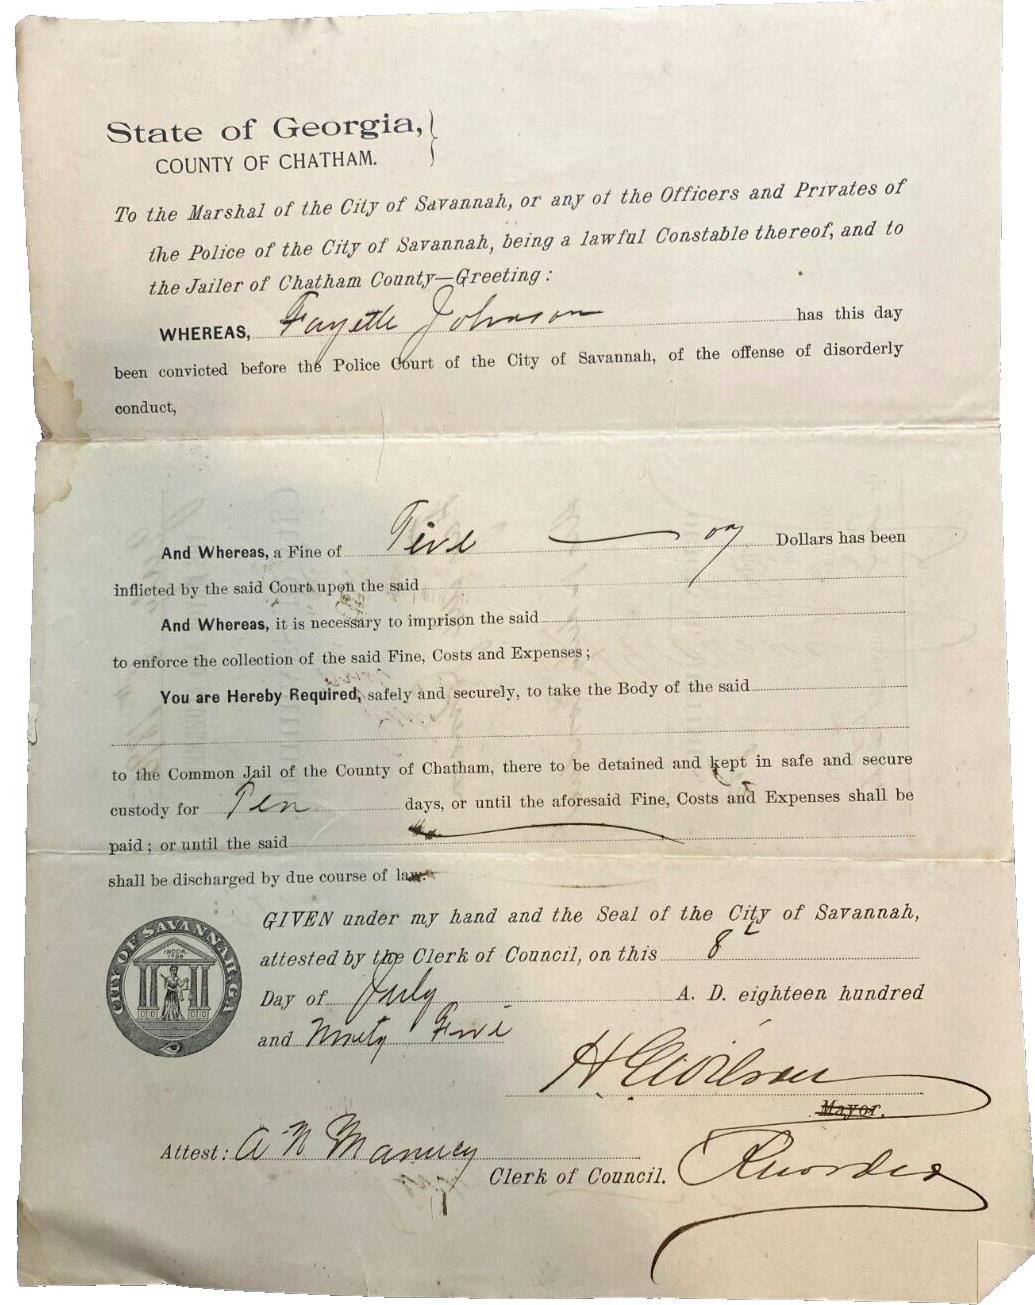 State of Georgia,
COUNTY OF CHATHAM.
To the Marshal of the City of Savannah, or any of the Officers and Privates of
the Police of the City of Savannah, being a lawful Constable thereof, and to
the Jailer of Chatham County—Greeting:
WHEREAS, Fayette Johnson has this day
been convicted before the Police Court of the City of Savannah, of the offense of disorderly
conduct,
And Whereas, a Fine of Five Dollars has been
inflicted by the said Court upon the said
And Whereas, it is necessary to imprison the said
to enforce the collection of the said Fine, Costs and Expenses;
You are Hereby Required, safely and securely, to take the Body of the said
to the Common Jail of the County of Chatham, there to be detained and kept in safe and secure
custody for Ten days, or until the aforesaid Fine, Costs and Expenses shall be
paid; or until the said
shall be discharged by due course of law.
GIVEN under my hand and the Seal of the City of Savannah,
attested by the Clerk of Council, on this 8
Day of July A. D. eighteen hundred
and Ninety Five
CITY OF SAVANNAH, GA
INCOR.
1789
Mayor.
Attest: A N Manucy
Clerk of Council.
Recorder